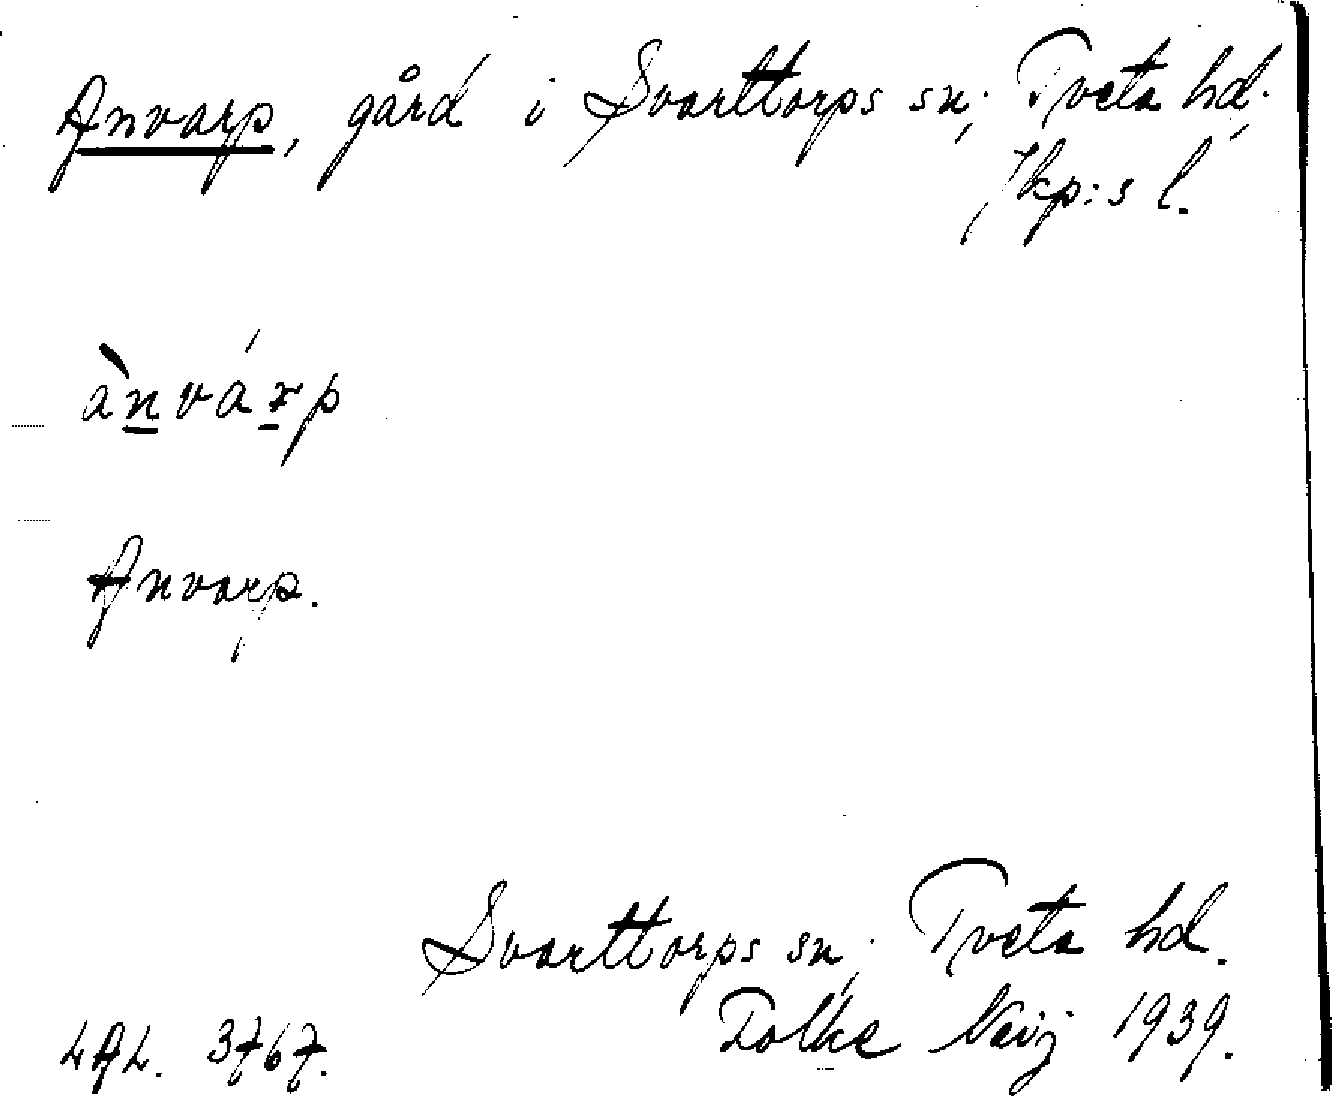 Anvarp, gård i Svarttorps sn; Tveta hd.
Jkp:s l.
ànvárp
Anvarp.
Svarttorps sn; Tveta hd.
Folke 1939.
LAL. 3767.